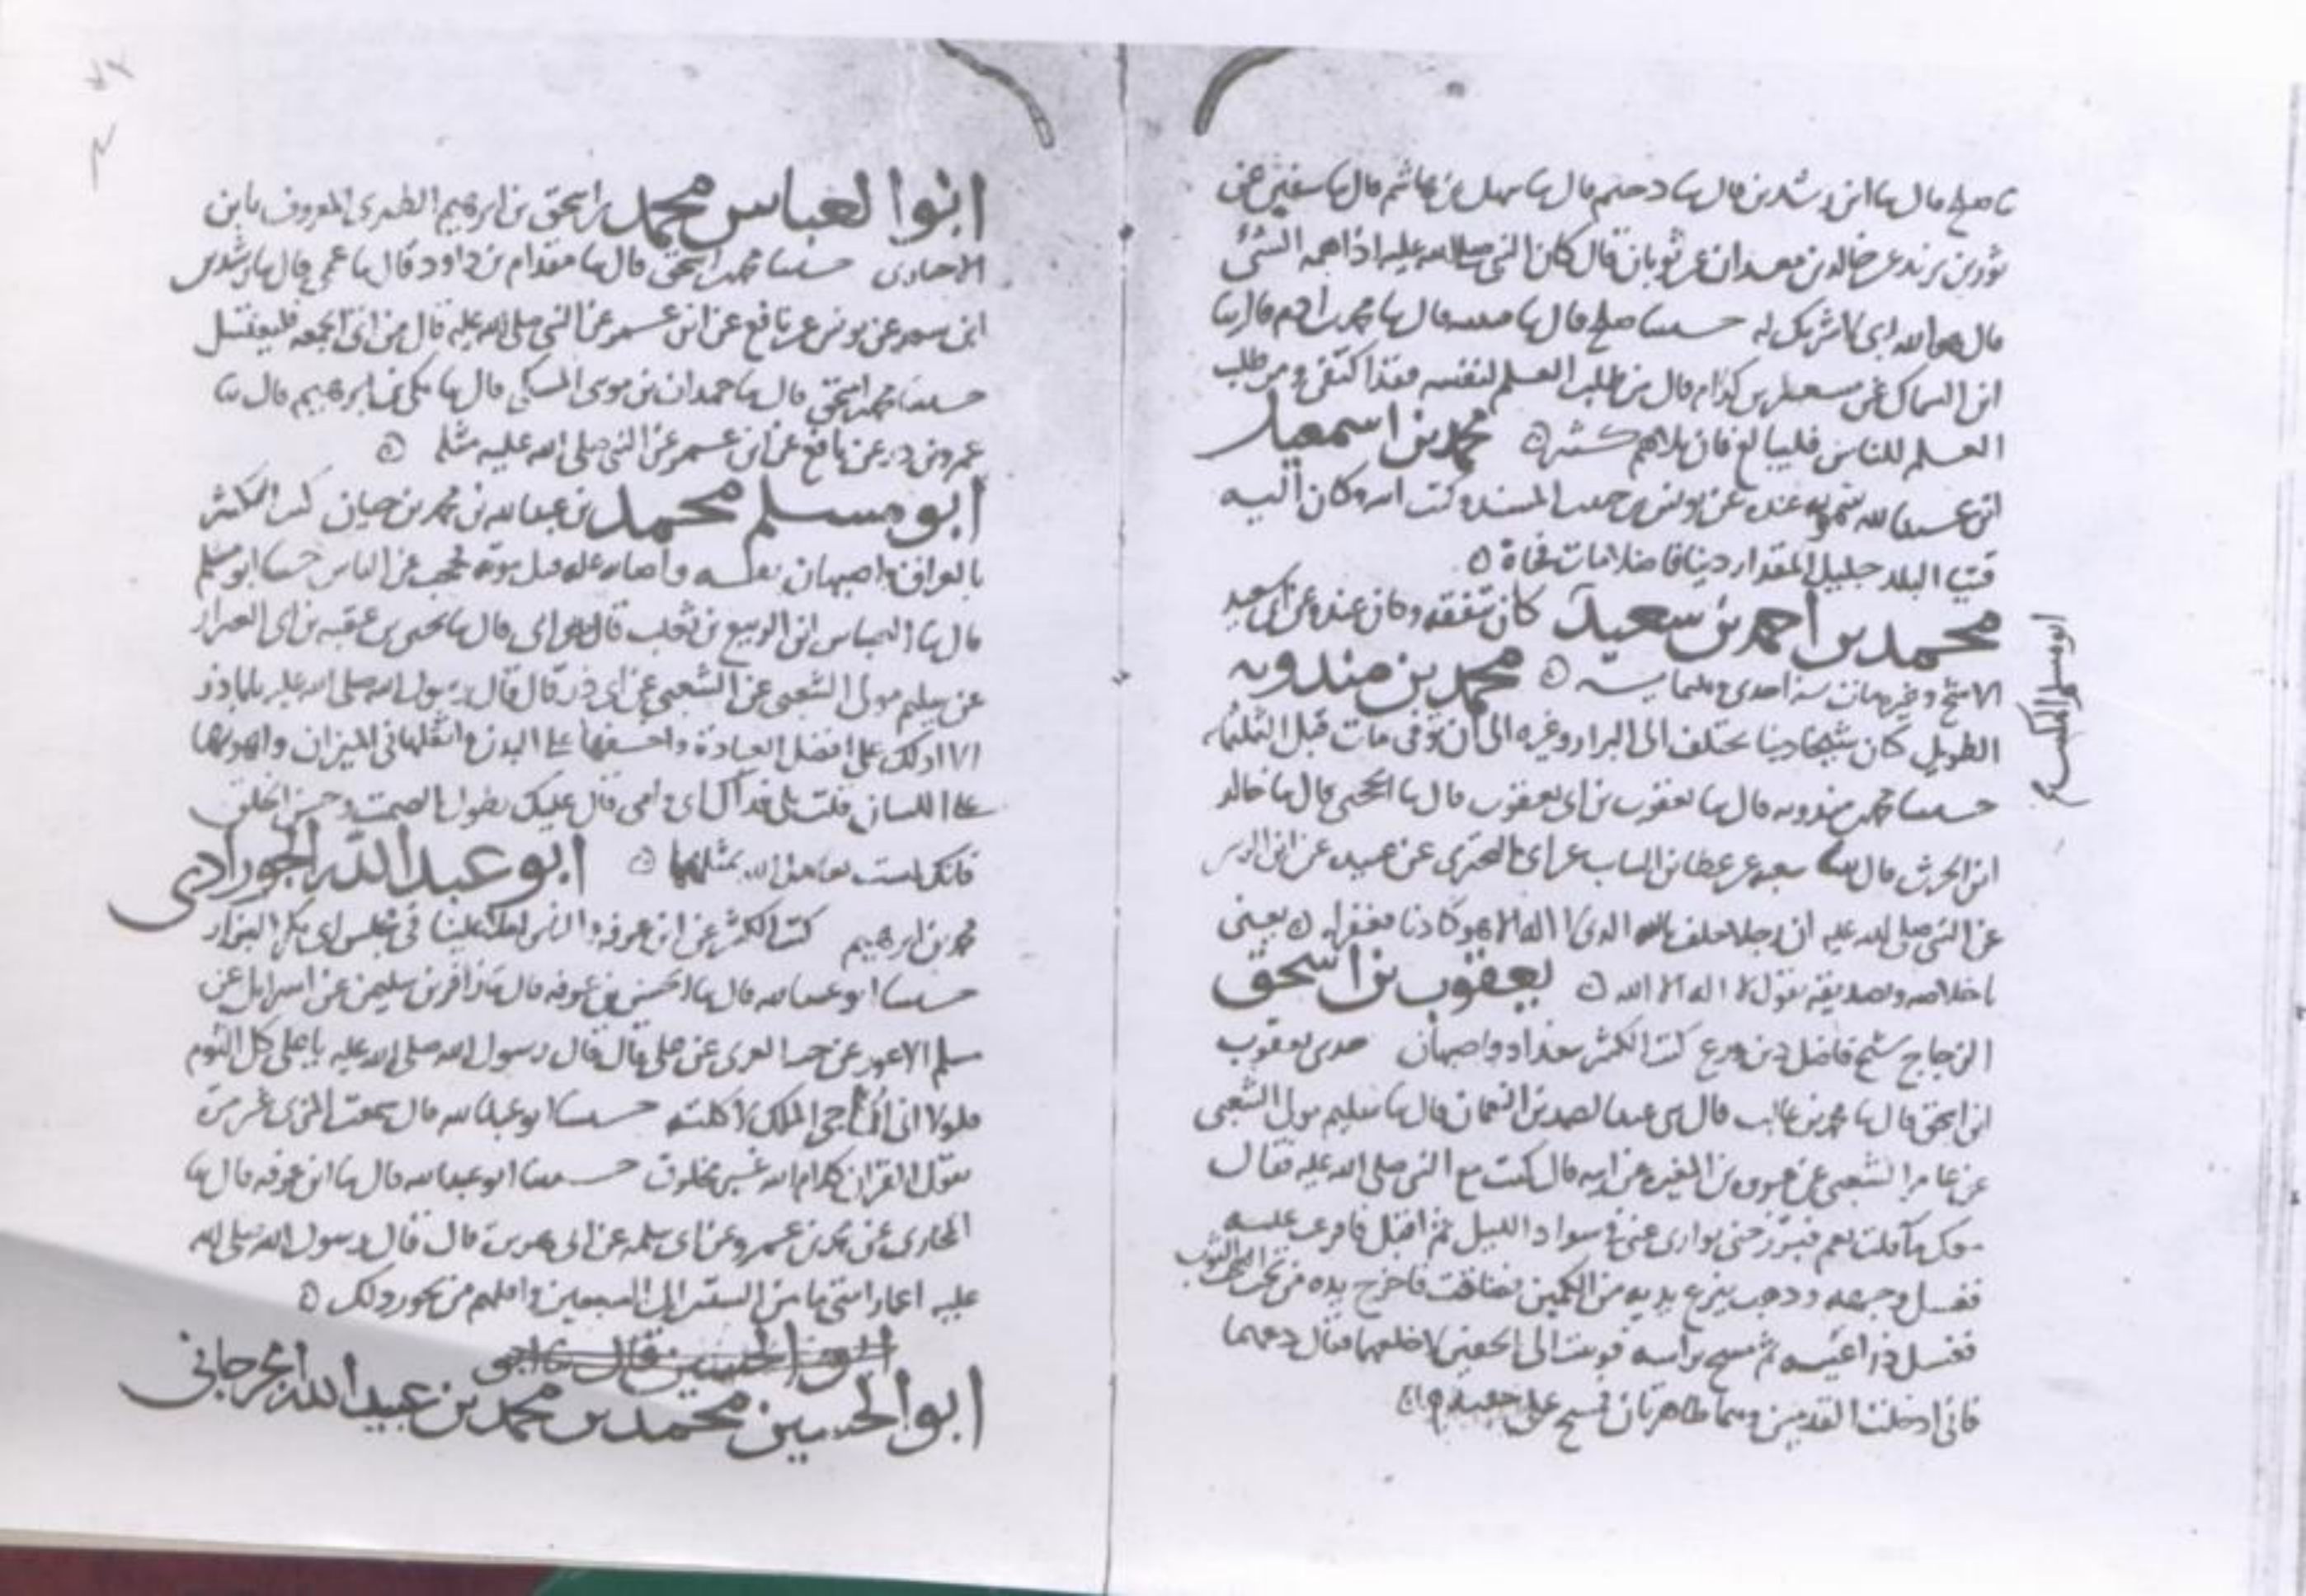 صلح قال ثنا ابن رشدين قال ثنا دحيم قال ثنا سهل بن هاشم قال ثنا سفين عن
ثور بن يزيد عن خالد بن معدان عن ثوبان قال كان النبي صلى الله عليه اذا اهمه الشي
قال هو الله ربي لا شريك له حدثنا صلح قال ثنا قال ثنا محمد بن ادم قال ثنا
ابن السماك عن مسعر بن كدام قال من طلب العلم لنفسه فقد اكتفى ومن طلب
العلم للناس فليبالغ فان بلاهم كثير ه محمد بن اسمعيل
ابن عبد الله سمويه عنده عن يونس بن حبيب المسند وكتب ابيه وكان اليه
فتيا البلد جليل المقدار دينا فاضلا مات فجاة ه
محمد بن احمد بن سعيد كان يتفقه وكان عنده عن ابي سعيد
الاشج وغيره مات سنة احدى وثلثماية ه محمد بن مندويه
الطويل كان شيخا دينا يختلف الى البزار وغيره الى ان توفي مات قبل الثلثمايه
حدثنا محمد بن مندويه قال ثنا يعقوب بن ابي يعقوب قال ثنا الجحبي قال ثنا خالد
ابن الحرث قال ثنا شعبه عن عطا بن السايب عن ابي البختري عن عبيده عن ابن الزبير
عن النبي صلى الله عليه ان رجلا حلف بالله الذي لا اله الا هو كاذبا فغفر له ه يعني
باخلاصه وتصديقه بقول لا اله الا الله ه يعقوب بن اسحق
الزجاج شيخ فاضل دين ورع كتب الكثير ببغداد واصبهان حدثني يعقوب
ابن اسحق قال ثنا محمد بن غالب قال ثني عبد الصمد بن النعمان قال ثنا سليم مولى الشعبي
عن عامر الشعبي عن عروه بن المغيره عن ابيه قال كنت مع النبي صلى الله عليه فقال
معك ما قلت نعم فتبرز حتى توارى عني في سواد الليل ثم اقبل فافرغت عليه
فغسل وجهه وذهب ينزع يديه من الكمين فضاقت فاخرج يده من تحت الثوب
فغسل ذراعيه ثم مسح براسه فهويت الى الخفين لاخلعهما فقال دعهما
فاني ادخلت القدمين وهما طاهرتان فمسح على خفيه ه
ابو مسلم المكتب
ابو العباس محمد بن اسحق بن ابرهيم الطهري المعروف بابن
الانصاري حدثنا محمد بن اسحق قال ثنا مقدام بن داود قال ثنا عمي قال ثنا رشدين
ابن سعد عن يونس عن نافع عن ابن عمر عن النبي صلى الله عليه قال من اتى الجمعه فليغتسل
حدثنا محمد بن اسحق قال ثنا حمدان بن موسى قال ثنا مكي بن ابرهيم قال ثنا
عمر بن ذر عن نافع عن ابن عمر عن النبي صلى الله عليه مثله ه
ابو مسلم محمد بن عبد الله بن محمد بن حيان كتب الكثير
بالعراق واصبهان بنفسه واصابه عله قبل موته فحجب عن الناس حدثنا ابو مسلم
قال ثنا العباس ابن الربيع بن ثعلب قال ثنا ابي قال ثنا يحيى بن عقبه بن ابي العيزار
عن سليم مولى الشعبي عن الشعبي عن ابي ذر قال قال رسول الله صلى الله عليه يا باذر
الا ادلك على افضل العبادة واخفها على البدن واثقلها في الميزان واهونها
على اللسان قلت بلى فداك ابي وامي قال عليك بطول الصمت وحسن الخلق
فانك لست بعامل لله بمثلهما ه ابو عبد الله الجورادي
محمد بن ابرهيم كتب الكثير عن ابن عرفه والناس املا علينا في مجلس ابي بكر البزار
حدثنا ابو عبد الله قال ثنا الحسن بن عرفه قال ثنا زافر بن سليمن عن اسرايل عن
مسلم الاعور عن حبه العرني عن علي قال قال رسول الله صلى الله عليه يا علي كل الثوم
فلولا اني اناجي الملك لاكلته حدثنا ابو عبد الله قال سمعت المزني غير مرة
يقول القران كلام الله غير مخلوق حدثنا ابو عبد الله قال ثنا ابن عرفه قال ثنا
المحاربي عن محمد بن عمرو عن ابي سلمه عن ابي هريرة قال قال رسول الله صلى الله
عليه اعمار امتي ما بين الستين الى السبعين واقلهم من يجوز ذلك ه
ابو الحسين محمد بن محمد بن عبيد الله الجرجاني